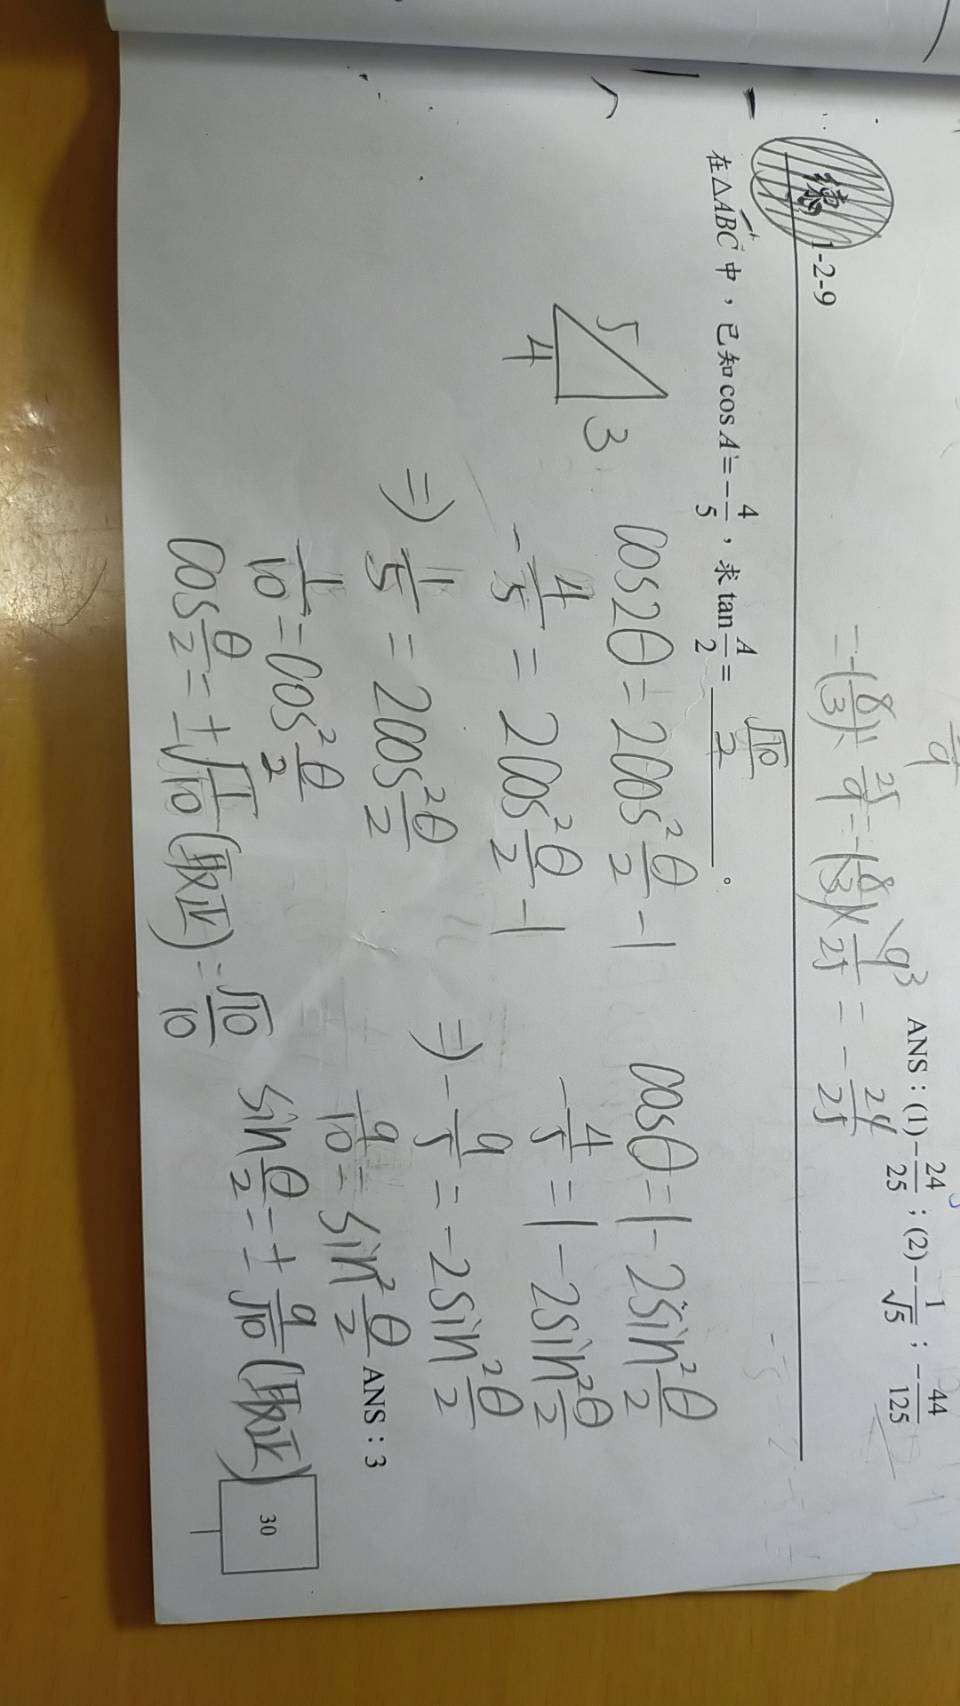 = -(8/3)× 25/9 = -(8/3)× 9/25 = -24/25
ANS : (1) -24/25 ; (2) -1/√5 ; -44/125
1-2-9
在△ABC中，已知cos A = -4/5，求tan A/2 = √10/2 。
5 3 4
cos2θ = 2cos²θ/2 - 1
-4/5 = 2cos²θ/2 - 1
⇒ 1/5 = 2cos²θ/2
1/10 = cos²θ/2
cosθ/2 = ±√1/10 (取正) = √10/10
cosθ = 1 - 2sin²θ/2
-4/5 = 1 - 2sin²θ/2
⇒ -9/5 = -2sin²θ/2
9/10 = sin²θ/2
sinθ/2 = ±9/√10 (取正)
ANS : 3
30